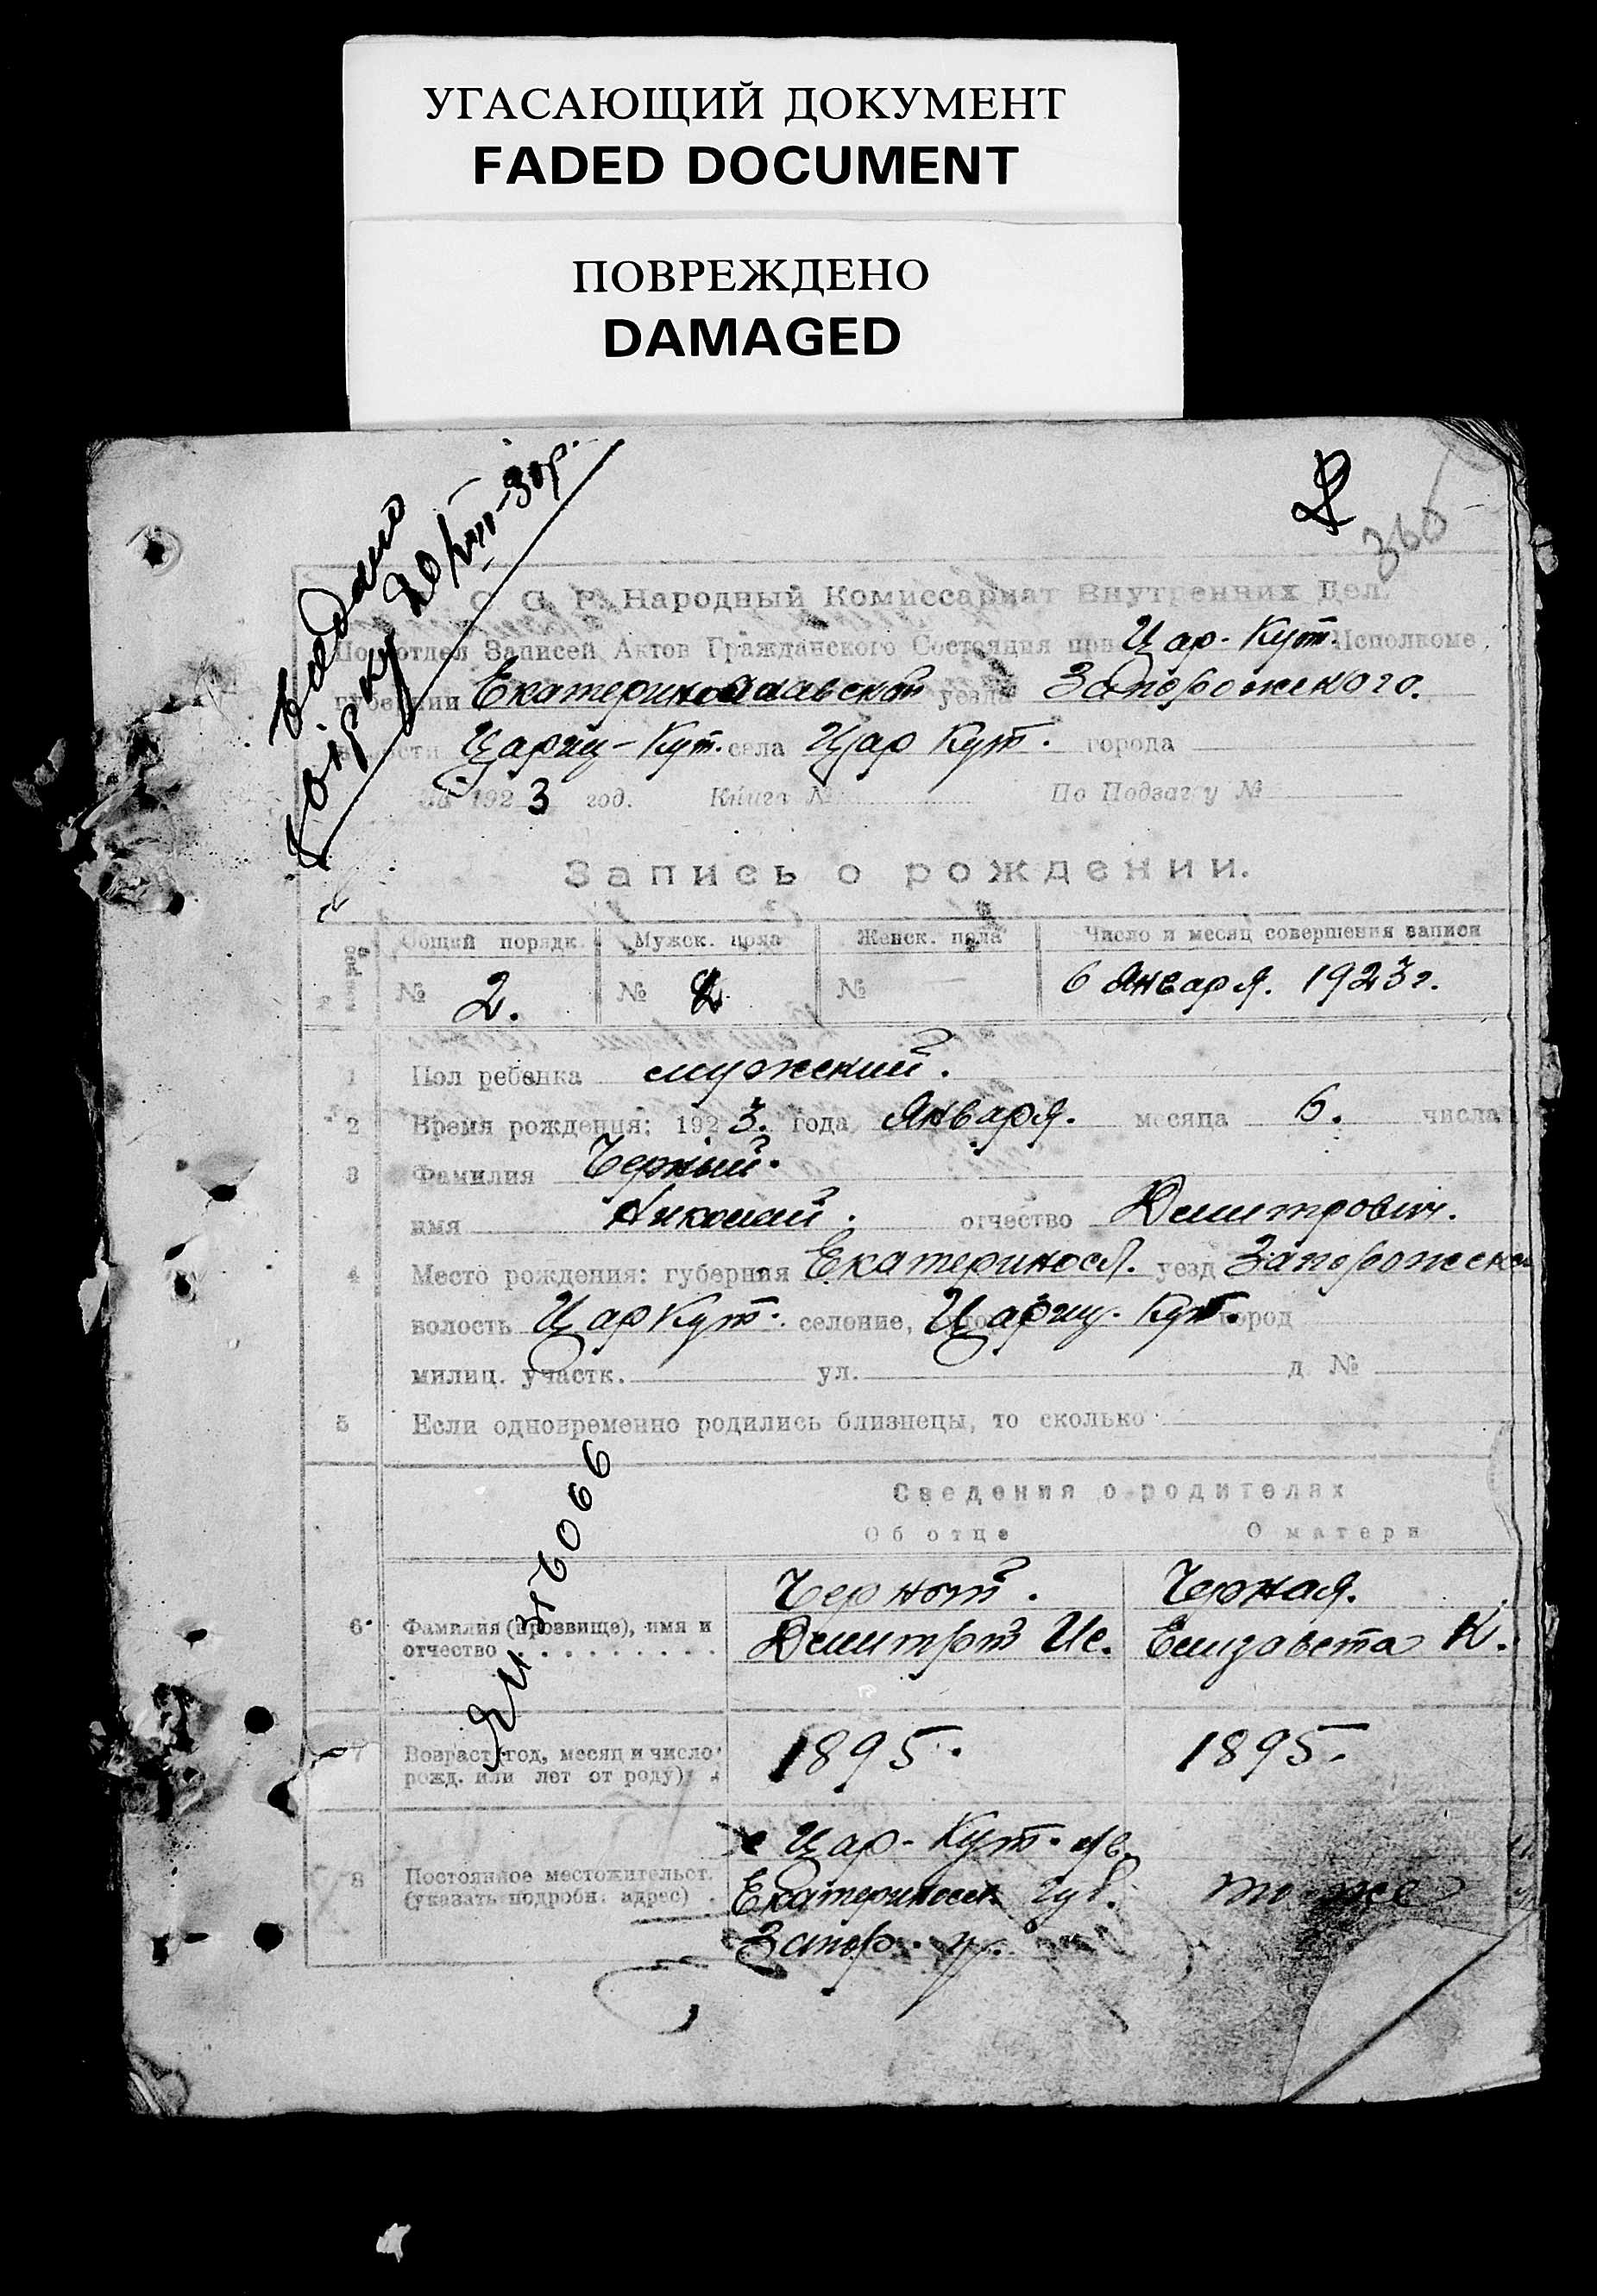 УГАСАЮЩИЙ ДОКУМЕНТ
FADED DOCUMENT
ПОВРЕЖДЕНО
DAMAGED
365
С. С. Р. Народный Комиссариат Внутренних Дел.
Подотдел Записей Актов Гражданского Состояния при Цар-Кут. Исполкоме,
губернии Екатеринославской уезда Запорожского.
волости Цариц-Кут. села Цар Кут. города
За 1923 год. Книга № По Подзагу №
Запись о рождении.
Общий порядк. Мужск. пола Женск. пола Число и месяц совершения записи
№ 2. № 2 № — 6 Января. 1923 г.
1 Пол ребенка мужский.
2 Время рождения: 1923. года Января. месяца 6. числа
3 Фамилия Черный.
имя Николай. отчество Димитрович.
4 Место рождения: губерния Екатериносл. уезд Запорожско
волость ЦарКут. селение, Цариц. Кут. город
милиц. участк. ул. д. №
5 Если одновременно родились близнецы, то сколько
Сведения о родителях
Об отце О матери
6 Фамилия (прозвище), имя и отчество Черной. Димитрий Ис. Черная. Елизавета К.
7 Возраст (год, месяц и число рожд. или лет от роду) 1895. 1895.
8 Постоянное местожительст. (указать подробн. адрес) с Цар-Кут.
Екатериносл. губ. то же
Запор. у.